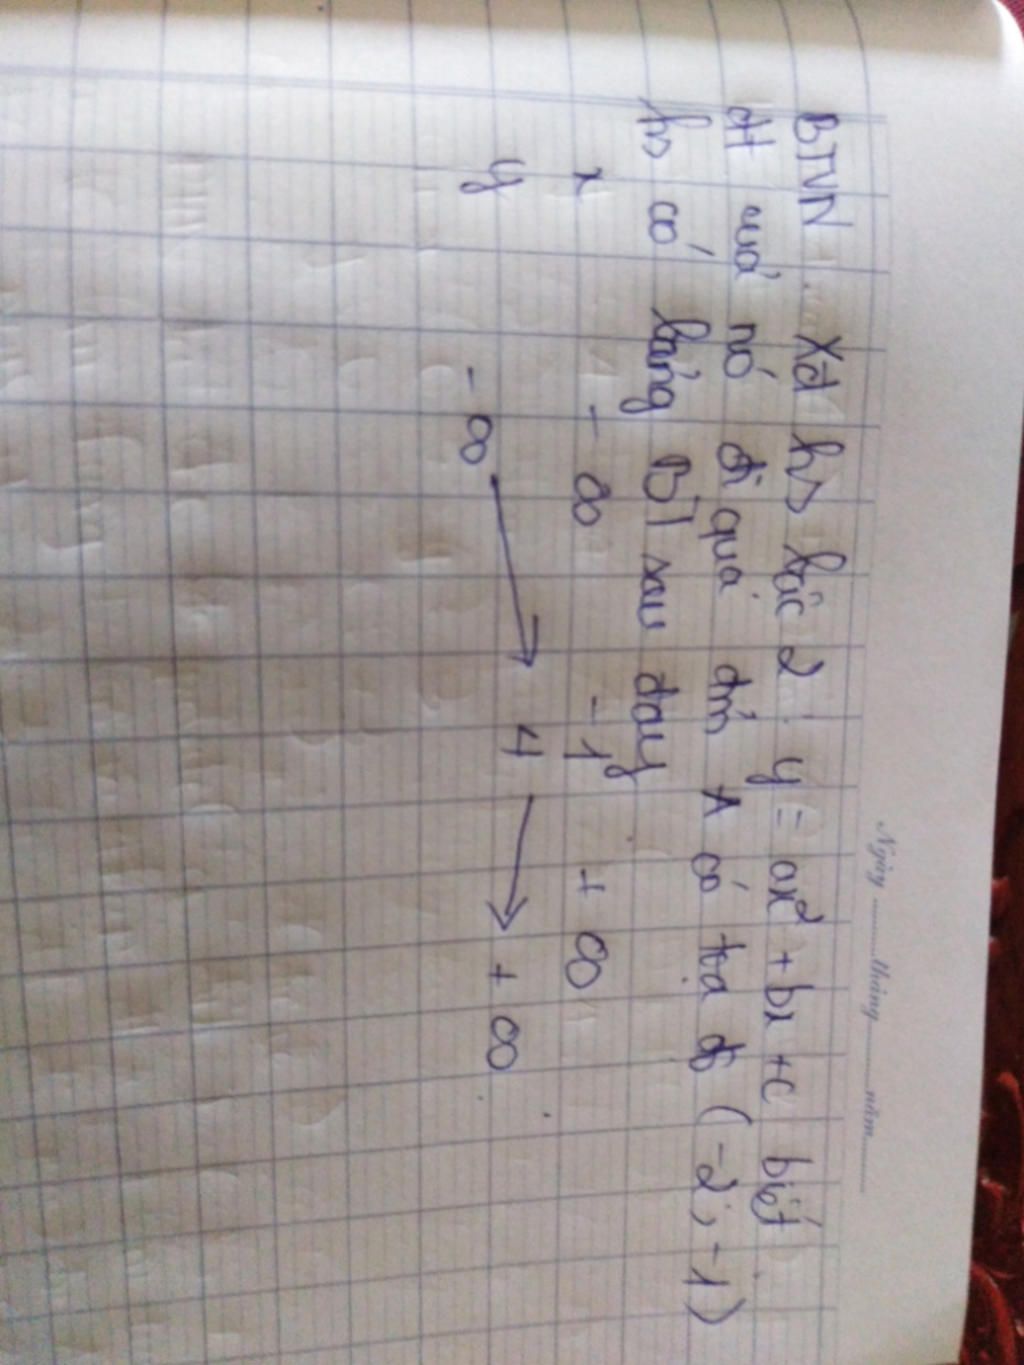 Ngày.........tháng.........năm.........
BTVN Xđ hs bậc 2 : y = ax² + bx + c biết
đt quá nó đi qua đm A có tọa độ (-2; -1)
hs có bảng BT sau đay
x - ∞ -1 + ∞
y - ∞ 4 + ∞